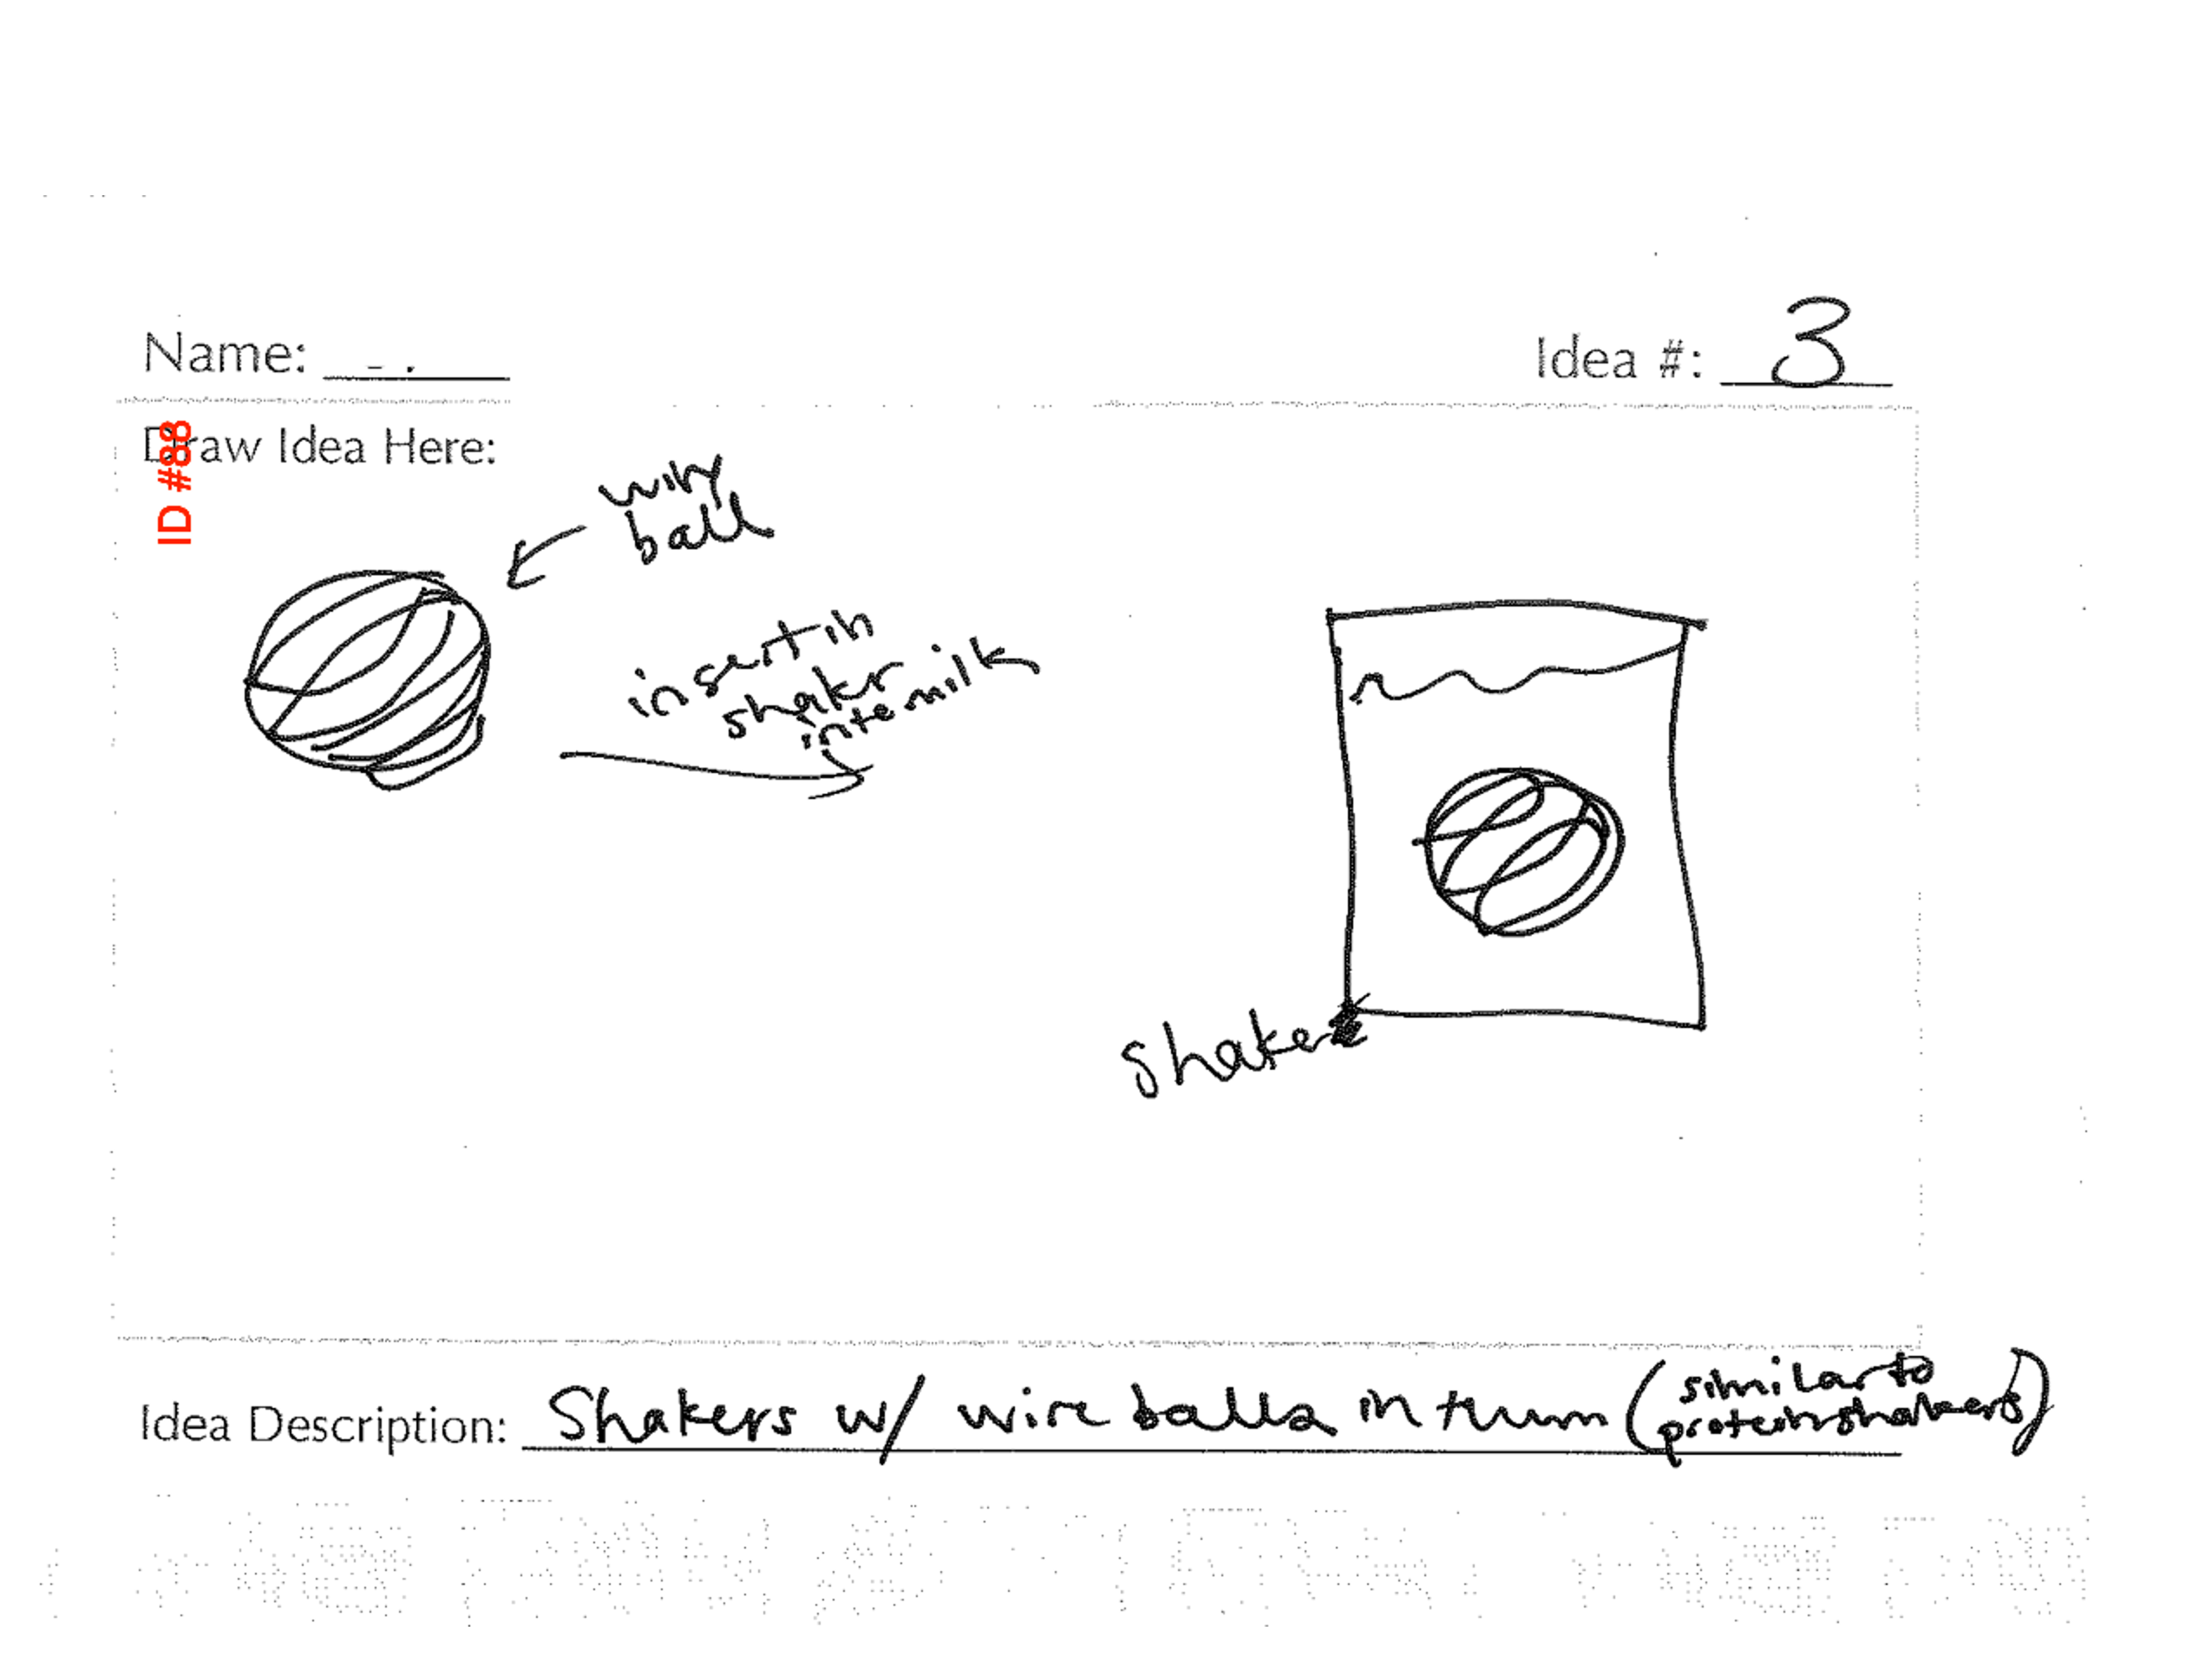 Name: - .
Idea #: 3
Draw Idea Here:
ID #88
wiry
ball
insert in
shakr
into milk
shaker
Idea Description: Shakers w/ wire balls in them (similar to
protein shakers)